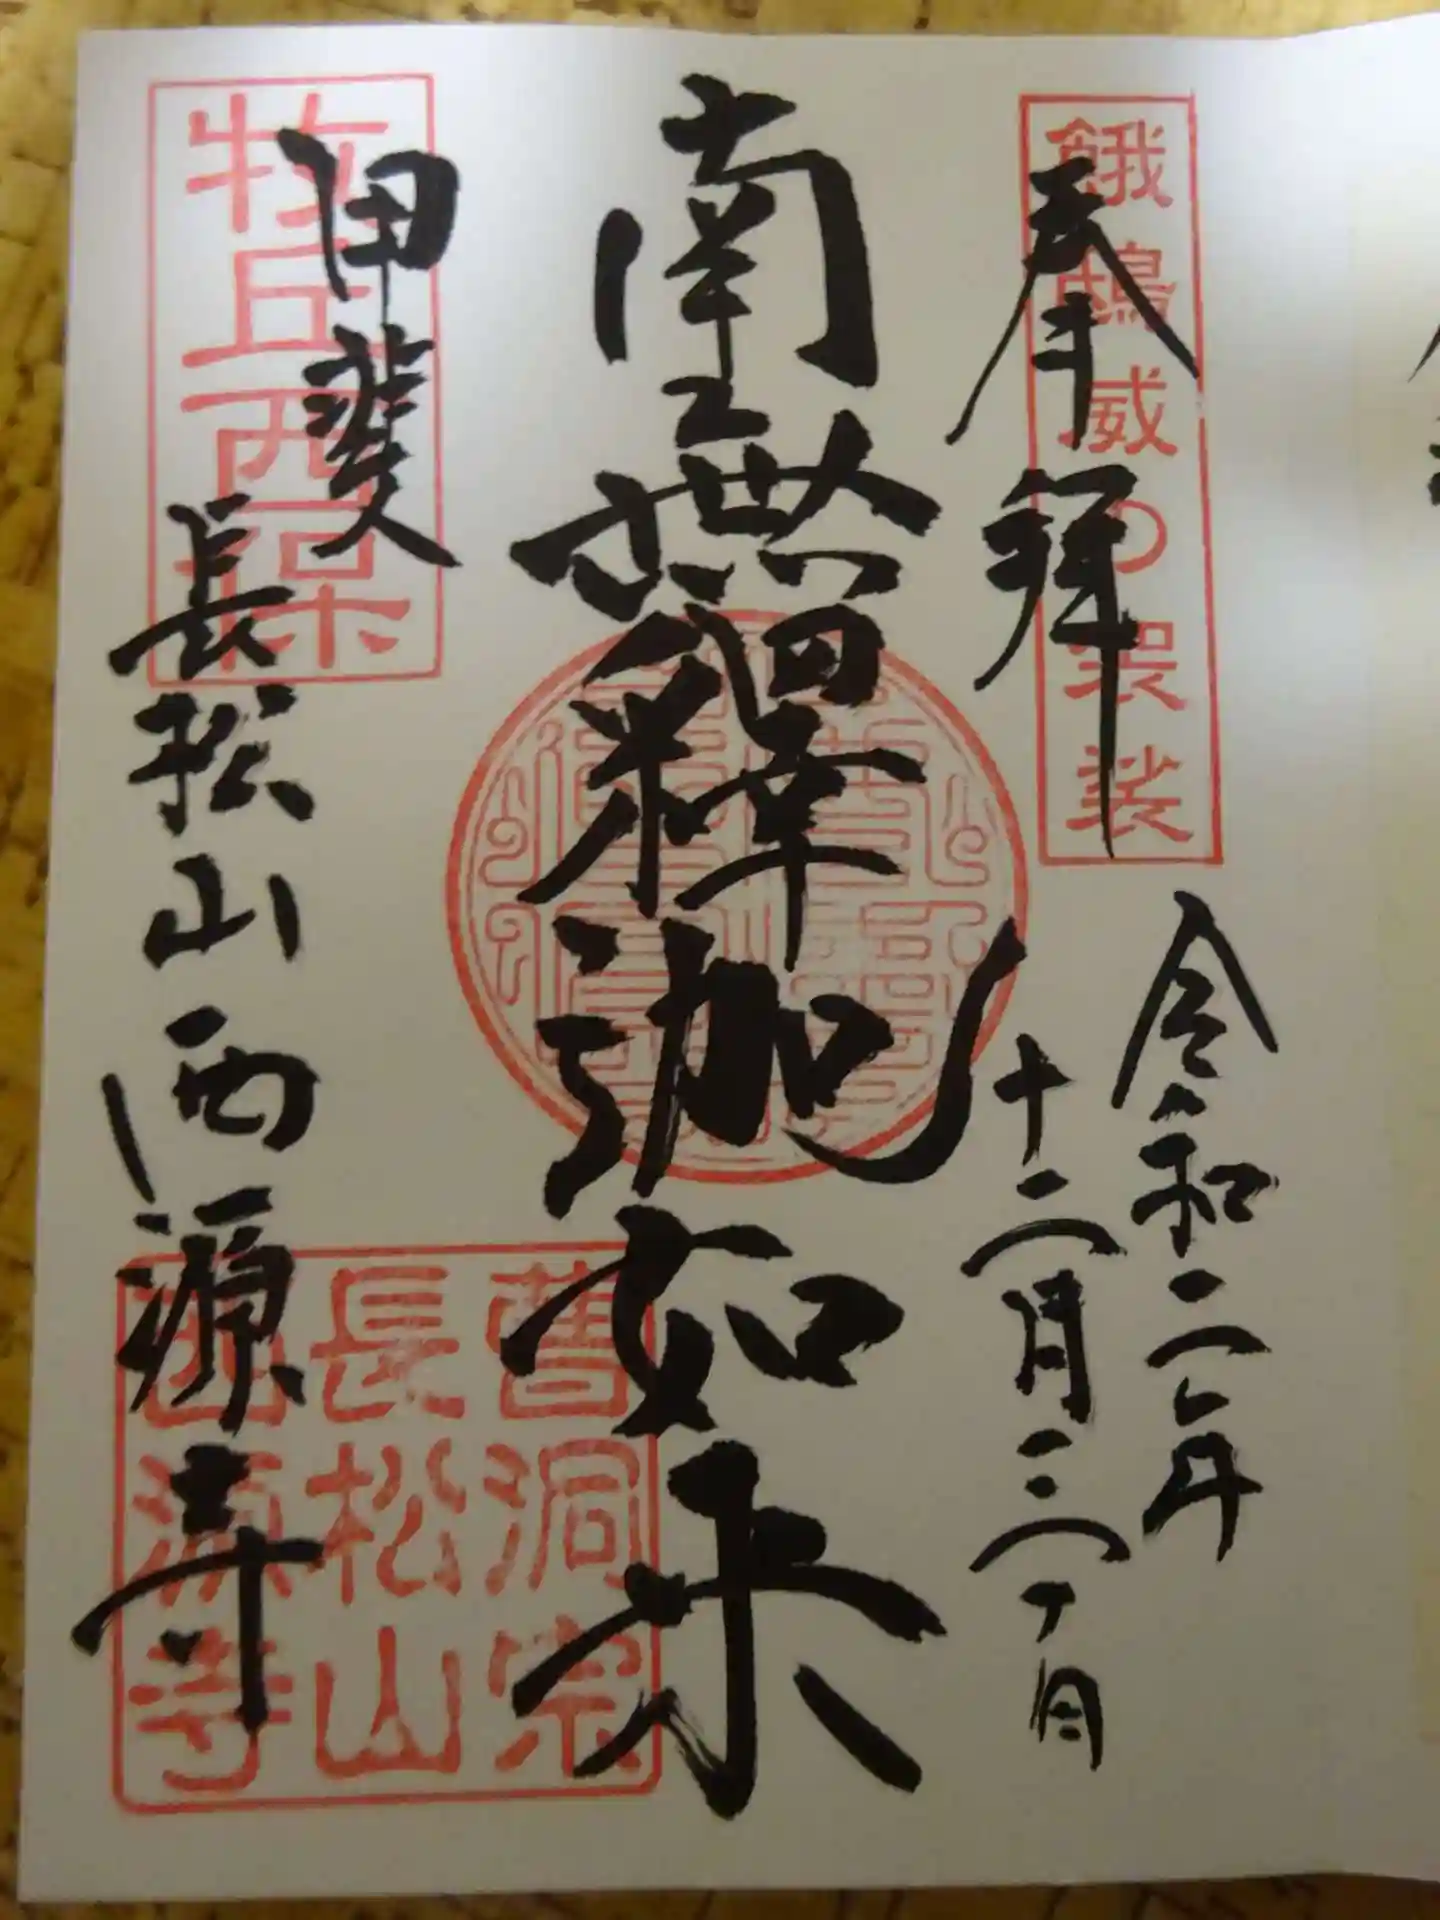 奉拝
餓鴟威の袈裟
令和二年
十二月三十日
南無釋迦如来
甲斐
長松山西源寺
曹洞宗
長松山
西源寺